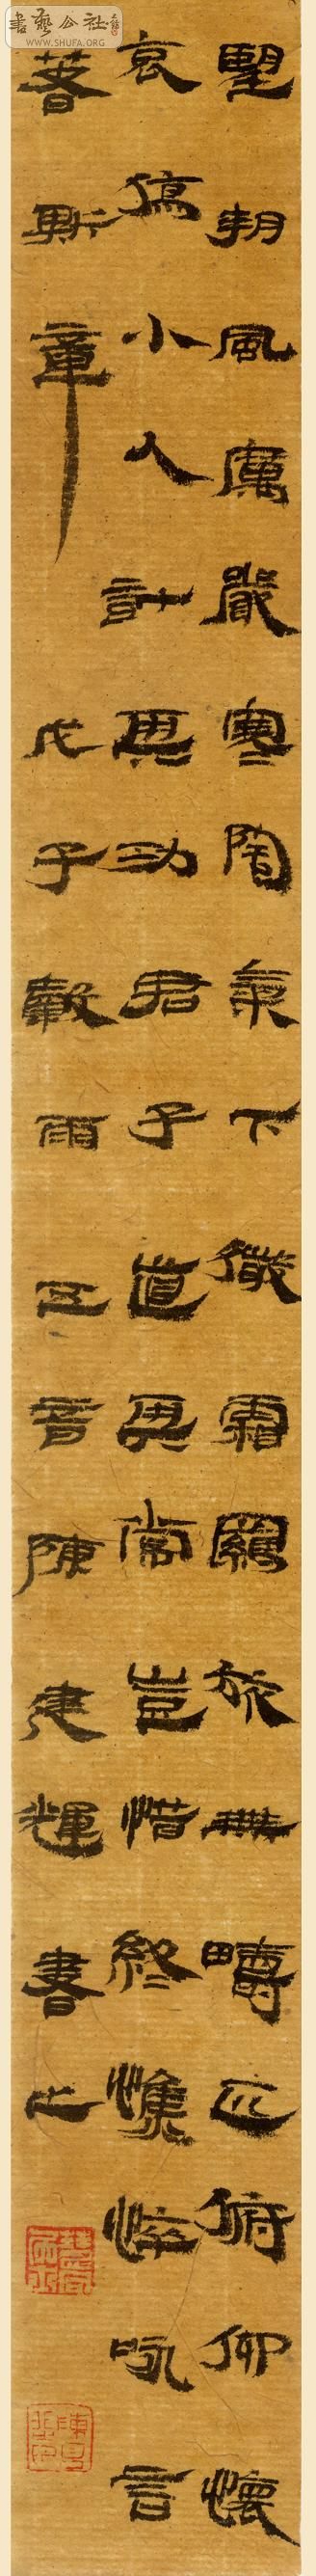 書藝公社
WWW.SHUFA.ORG
朢朔風厲嚴寒陰氣下微霜羈旅無疇匹俯仰懷
哀傷小人計其功君子道其常豈惜終憔悴咏言
著斯章戊子穀雨陳建輝書之